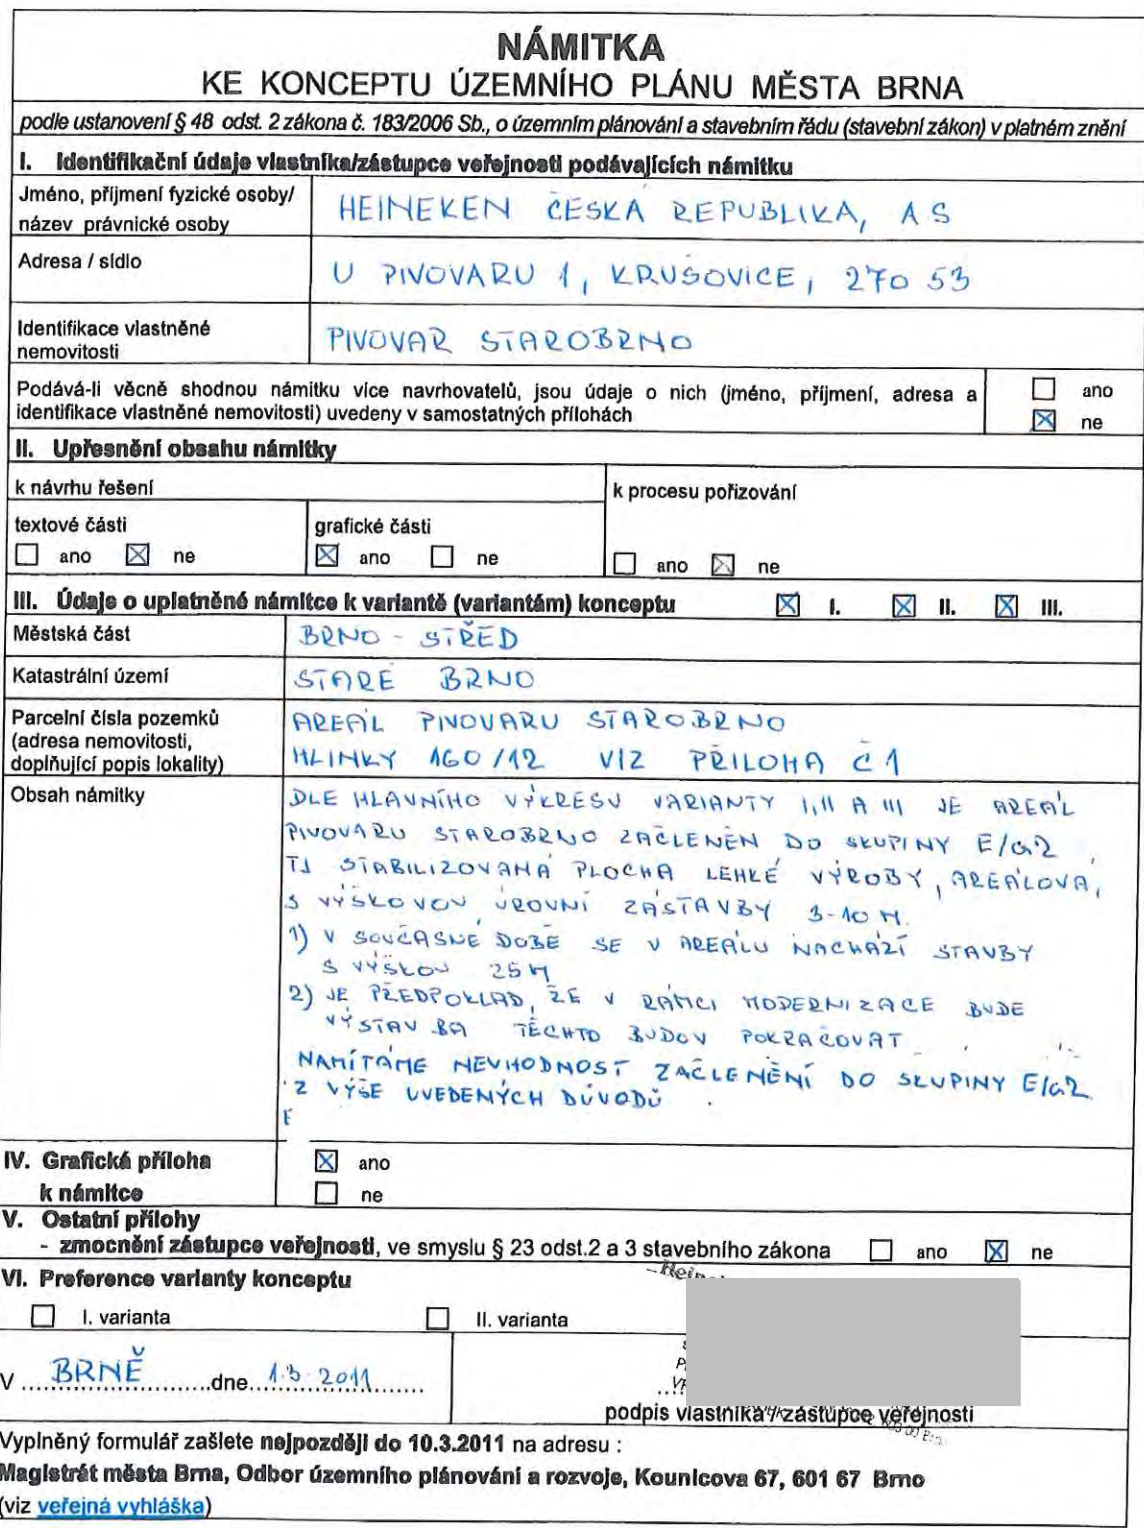 NÁMITKA
KE KONCEPTU ÚZEMNÍHO PLÁNU MĚSTA BRNA
podle ustanovení § 48 odst. 2 zákona č. 183/2006 Sb., o územním plánování a stavebním řádu (stavební zákon) v platném znění
I. Identifikační údaje vlastníka/zástupce veřejnosti podávajících námitku
Jméno, příjmení fyzické osoby/
název právnické osoby
HEINEKEN ČESKÁ REPUBLIKA, AS
Adresa / sídlo
U PIVOVARU 1, KRUŠOVICE, 270 53
Identifikace vlastněné
nemovitosti
PIVOVAR STAROBRNO
Podává-li věcně shodnou námitku více navrhovatelů, jsou údaje o nich (jméno, příjmení, adresa a
identifikace vlastněné nemovitosti) uvedeny v samostatných přílohách
ano
ne
II. Upřesnění obsahu námitky
k návrhu řešení
k procesu pořizování
textové části
grafické části
ano ne
ano ne
ano ne
III. Údaje o uplatněné námitce k variantě (variantám) konceptu I. II. III.
Městská část
BRNO - STŘED
Katastrální území
STARÉ BRNO
Parcelní čísla pozemků
(adresa nemovitosti,
doplňující popis lokality)
AREÁL PIVOVARU STAROBRNO
HLINKY 160/12 VIZ PŘILOHA Č 1
Obsah námitky
DLE HLAVNÍHO VÝKRESU VARIANTY I, II A III JE AREÁL
PIVOVARU STAROBRNO ZAČLENĚN DO SKUPINY E/a2
TJ STABILIZOVANÁ PLOCHA LEHKÉ VÝROBY, AREÁLOVÁ,
S VÝŠKOVOU ÚROVNÍ ZÁSTAVBY 3-10 M.
1) V SOUČASNÉ DOBĚ SE V AREÁLU NACHÁZÍ STAVBY
S VÝŠKOU 25M
2) JE PŘEDPOKLAD, ŽE V RÁMCI MODERNIZACE BUDE
VÝSTAVBA TĚCHTO BUDOV POKRAČOVAT
NAMÍTÁME NEVHODNOST ZAČLENĚNÍ DO SKUPINY E/a2
Z VÝŠE UVEDENÝCH DŮVODŮ.
IV. Grafická příloha
k námitce
ano
ne
V. Ostatní přílohy
- zmocnění zástupce veřejnosti, ve smyslu § 23 odst.2 a 3 stavebního zákona ano ne
VI. Preference varianty konceptu
I. varianta
II. varianta
V BRNĚ dne 1.3.2011
podpis vlastníka / zástupce veřejnosti
Vyplněný formulář zašlete nejpozději do 10.3.2011 na adresu :
Magistrát města Brna, Odbor územního plánování a rozvoje, Kounicova 67, 601 67 Brno
(viz veřejná vyhláška)